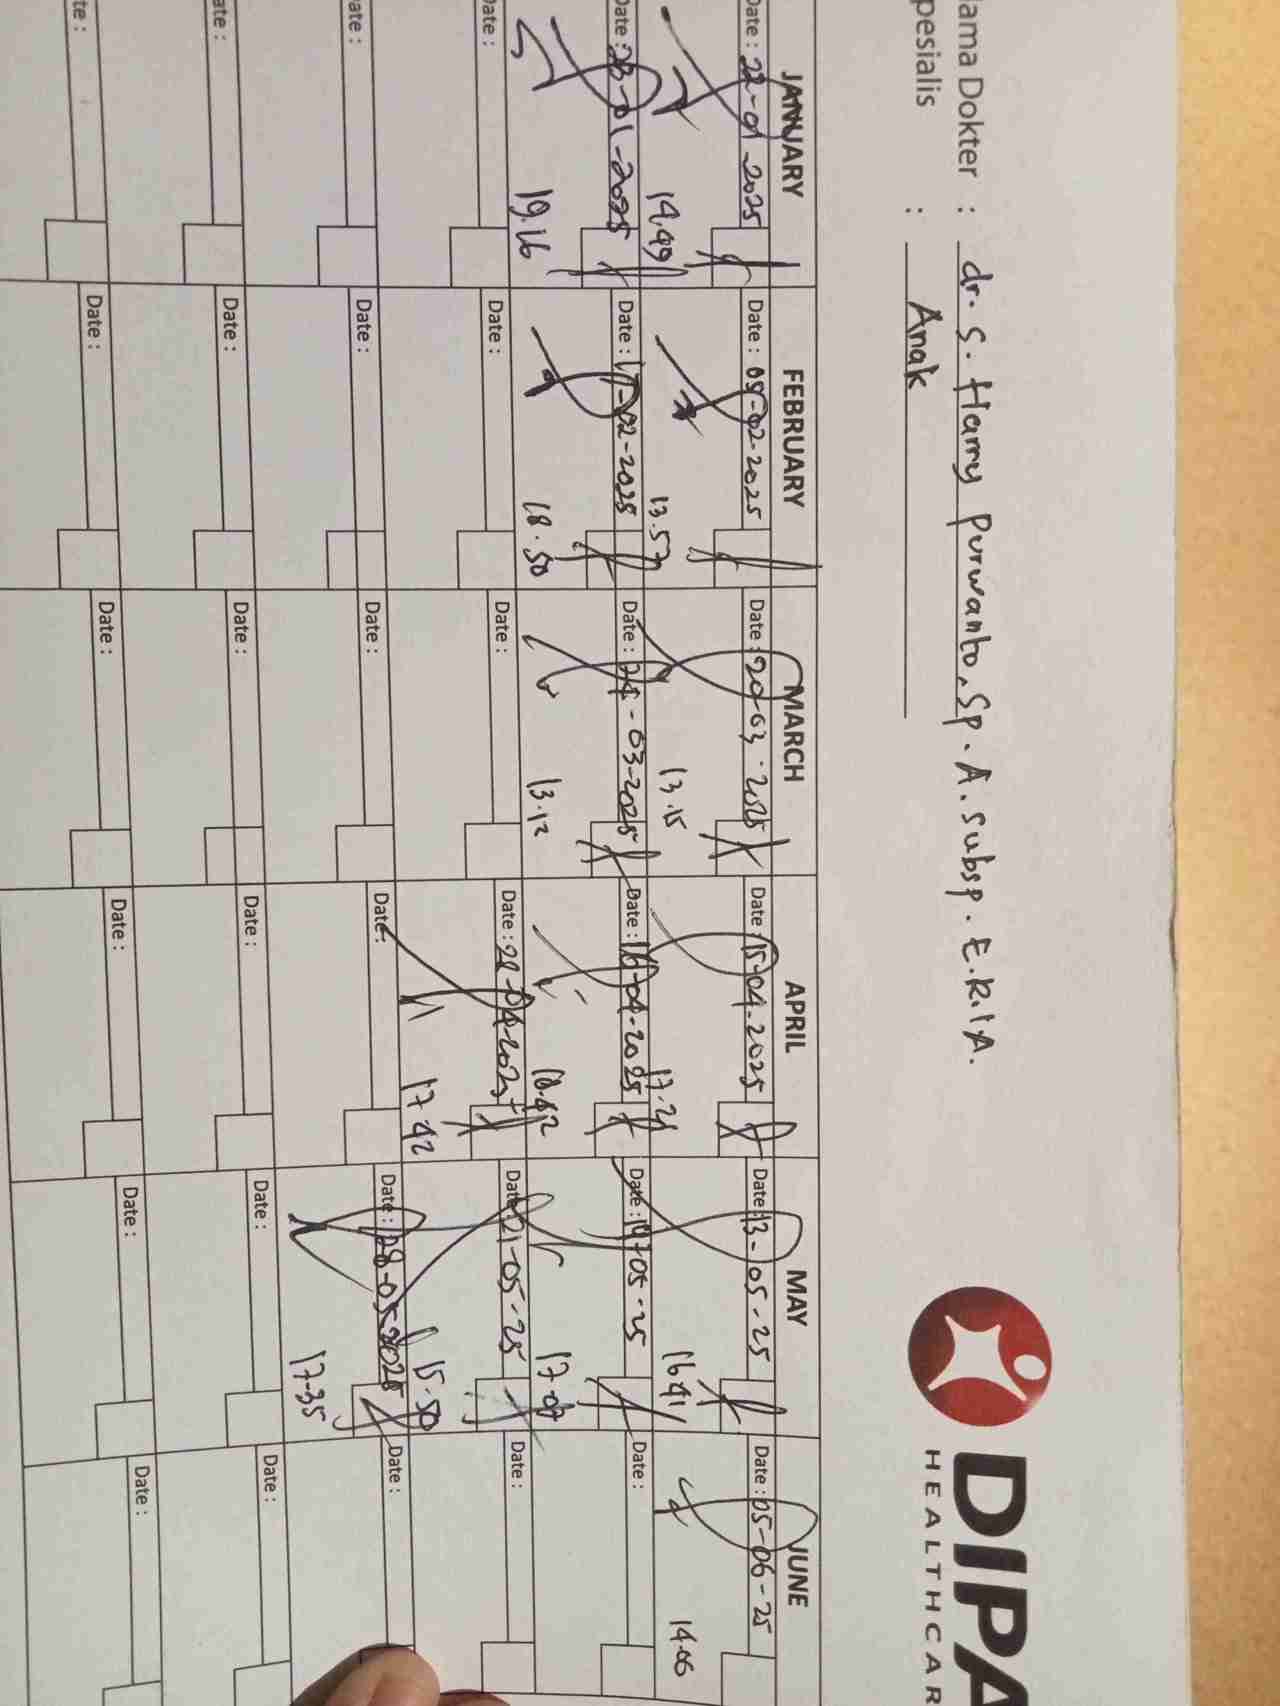 ama Dokter : dr. S. Harry Purwanto, Sp. A. subsp. E.K.I.A.
pesialis : Anak
DIPA
HEALTHCAR
JANUARY FEBRUARY MARCH APRIL MAY JUNE
Date : 22-01-2025 Date : 05-02-2025 Date : 20-03-2025 Date : 15-04-2025 Date : 13-05-25 Date : 05-06-25
14.49 13.57 13.15 17.21 16.41 14.06
Date : 23-01-2025 Date : 17-02-2025 Date : 24-03-2025 Date : 16-04-2025 Date : 19-05-25 Date :
19.16 18.50 13.12 18.42 17.07
Date : Date : Date : Date : 28-04-2025 Date : 21-05-25 Date :
17.42 15.50
ate : Date : Date : Date : Date : 28-05-2025 Date :
17.35
ate : Date : Date : Date : Date : Date :
te : Date : Date : Date : Date : Date :